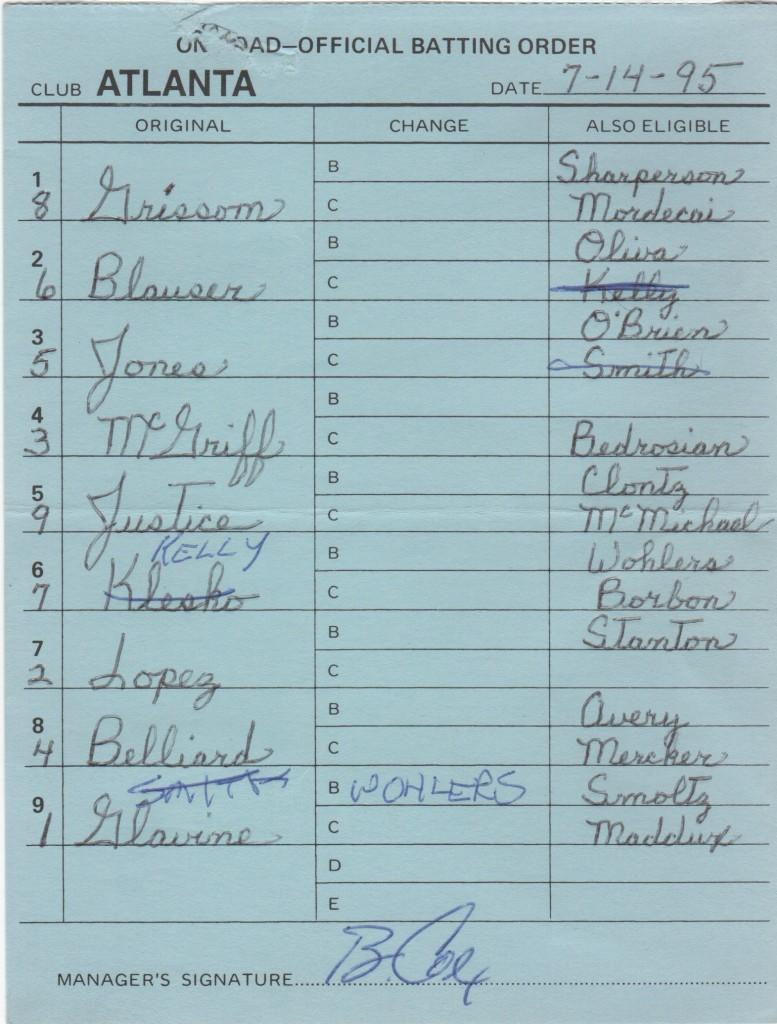 ON ROAD—OFFICIAL BATTING ORDER
CLUB ATLANTA DATE 7-14-95
ORIGINAL CHANGE ALSO ELIGIBLE
1 B Sharperson
8 Grissom C Mordecai
2 B Oliva
6 Blauser C Kelly
3 B O'Brien
5 Jones C Smith
4 B
3 McGriff C Bedrosian
5 B Clontz
9 Justice C McMichael
KELLY
6 B Wohlers
7 Klesko C Borbon
7 B Stanton
2 Lopez C
8 B Avery
4 Belliard C Mercker
SMITH
9 B WOHLERS Smoltz
1 Glavine C Maddux
D
E
MANAGER'S SIGNATURE B. Cox